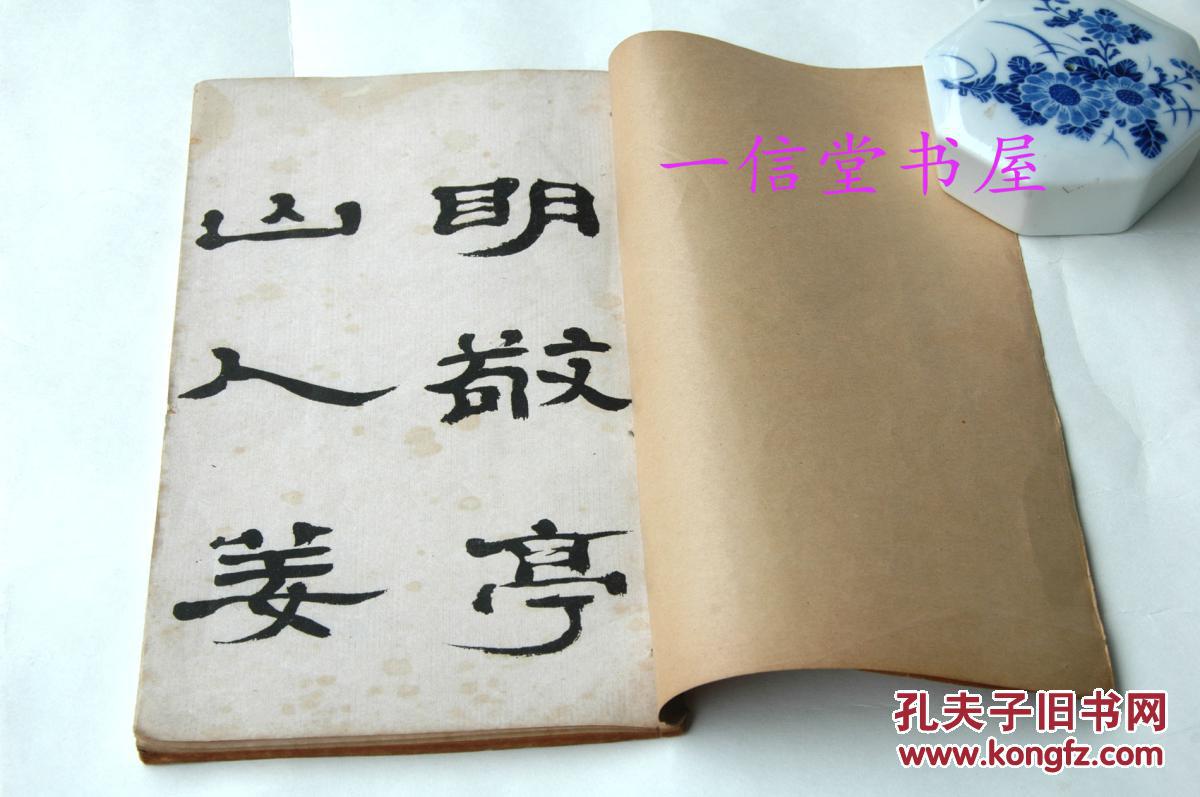 明敬亭
山人姜
一信堂书屋
孔夫子旧书网
www.kongfz.com